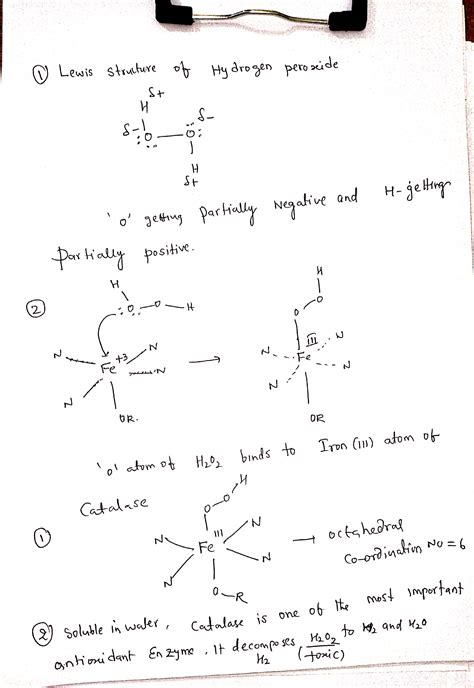 ① Lewis structure of Hydrogen peroxide
δ+
H
δ- :O — O: δ-
H
δ+
'O' getting partially Negative and H- getting
partially positive.
②
H
:O — O — H
N Fe+3 N
N N
OR.
H
O
O
N III N
Fe
N N
OR
'O' atom of H2O2 binds to Iron (III) atom of
Catalase
H
O
O
① N III N
Fe → octahedral
N N Co-ordination No = 6
O-R
② Soluble in water, Catalase is one of the most important
antioxidant Enzyme. It decomposes H2O2 to H2 and H2O
H2 (toxic)